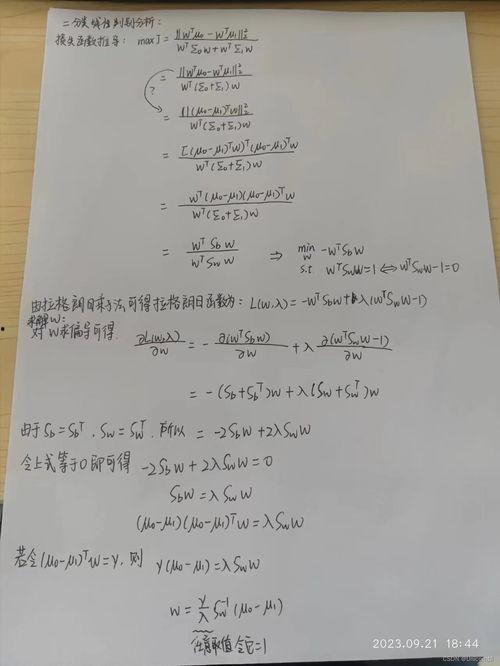 二分类线性判别分析:
损失函数推导: max J = ||wᵀμ₀ - wᵀμ₁||₂² / (wᵀΣ₀w + wᵀΣ₁w)
= ||wᵀμ₀ - wᵀμ₁||₂² / (wᵀ(Σ₀+Σ₁)w)
?
= ||(μ₀-μ₁)ᵀw||₂² / (wᵀ(Σ₀+Σ₁)w)
= [(μ₀-μ₁)ᵀw]ᵀ(μ₀-μ₁)ᵀw / (wᵀ(Σ₀+Σ₁)w)
= wᵀ(μ₀-μ₁)(μ₀-μ₁)ᵀw / (wᵀ(Σ₀+Σ₁)w)
= wᵀSbw / wᵀSww ⇒ min w -wᵀSbw
s.t. wᵀSww=1 ⟺ wᵀSww-1=0
由拉格朗日乘子法可得拉格朗日函数为: L(w,λ) = -wᵀSbw+λ(wᵀSww-1)
求解w:
对w求偏导可得 ∂L(w,λ)/∂w = - ∂(wᵀSbw)/∂w + λ ∂(wᵀSww-1)/∂w
= -(Sb+Sbᵀ)w + λ(Sw+Swᵀ)w
由于Sb=Sbᵀ, Sw=Swᵀ, 所以 = -2Sbw+2λSww
令上式等于0即可得 -2Sbw+2λSww=0
Sbw=λSww
(μ₀-μ₁)(μ₀-μ₁)ᵀw=λSww
若令(μ₀-μ₁)ᵀw=γ, 则 γ(μ₀-μ₁)=λSww
w = γ/λ Sw⁻¹(μ₀-μ₁)
任意取值,令它=1
2023.09.21 18:44